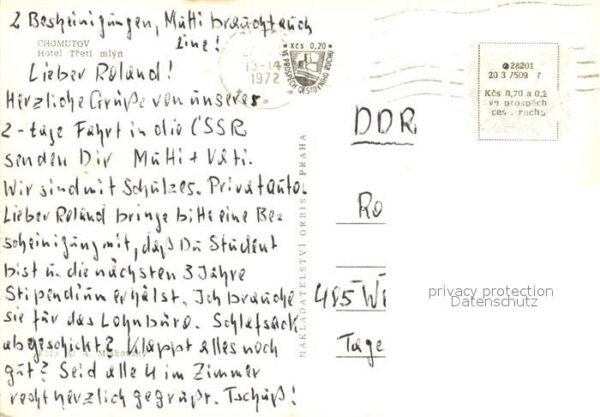 2 Bescheinigungen, Mutti braucht auch
eine!
CHOMUTOV
Hotel Třetí mlýn
Lieber Roland!
Herzliche Grüße von unserer
2-tage Fahrt in die ČSSR
senden Dir Mutti + Vati.
Wir sind mit Schulzes. Privatauto.
Lieber Roland bringe bitte eine Be-
scheinigung mit, daß Du Student
bist u. die nächsten 3 Jahre
Stipendium erhälst. Ich brauche
sie für das Lohnbüro. Schlafsack
abgeschickt? Klappt alles noch
gut? Seid alle 4 im Zimmer
recht herzlich gegrüßt. Tschüß!
NAKLADATELSTVÍ ORBIS PRAHA
13-14
1972
Kčs 0,20
VE PROSPĚCH CESTOVNÍHO RUCHU
28201
20 3 7509 7
Kčs 0,70 a 0,2
ve prospěch
ces. ruchu
DDR
Ro
485 Wi
Tage
privacy protection
Datenschutz